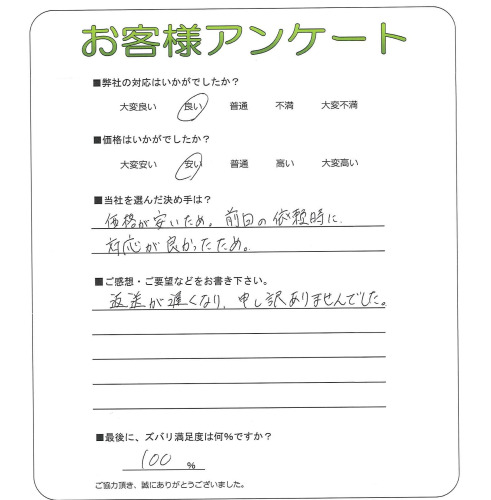 お客様アンケート
■弊社の対応はいかがでしたか？
大変良い　良い　普通　不満　大変不満
■価格はいかがでしたか？
大変安い　安い　普通　高い　大変高い
■当社を選んだ決め手は？
価格が安いため。前日の依頼時に
対応が良かったため。
■ご感想・ご要望などをお書き下さい。
返送が遅くなり、申し訳ありませんでした。
■最後に、ズバリ満足度は何％ですか？
100 %
ご協力頂き、誠にありがとうございました。